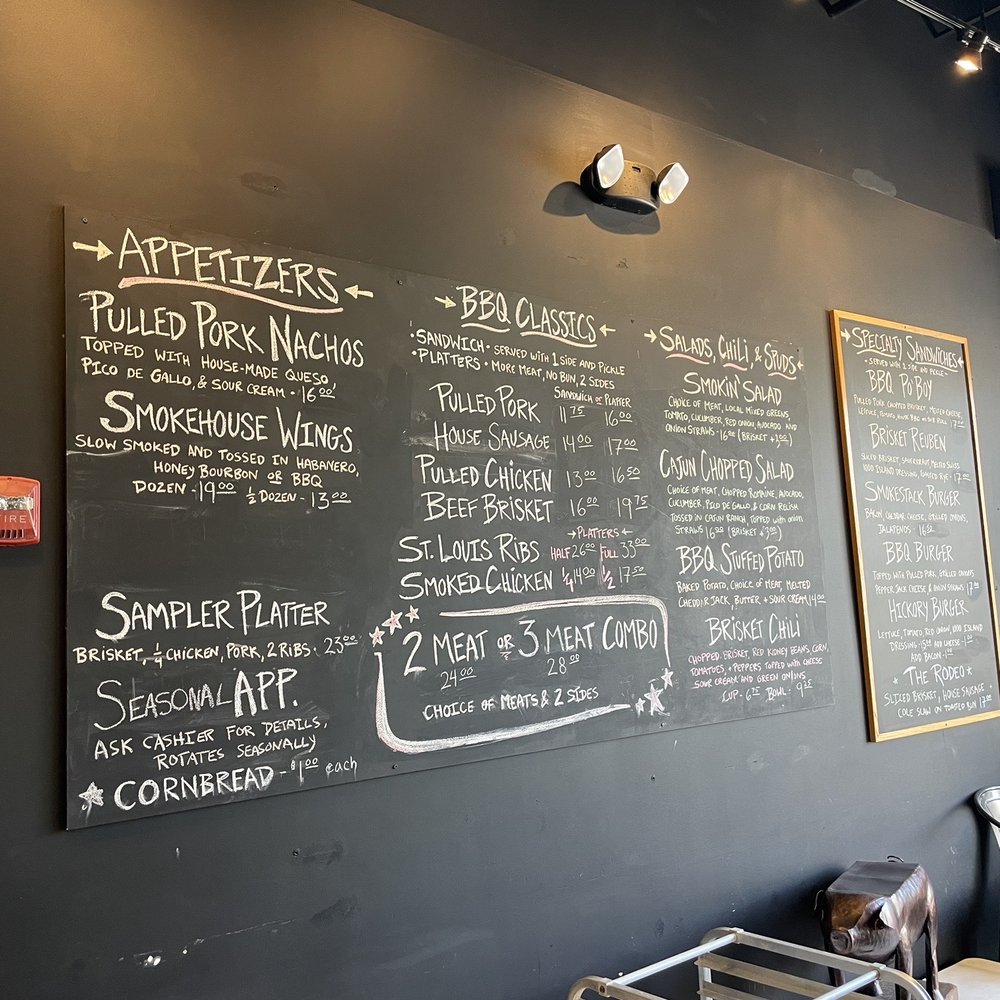 APPETIZERS
PULLED PORK NACHOS
TOPPED WITH HOUSE-MADE QUESO,
PICO DE GALLO, & SOUR CREAM - 16.00
SMOKEHOUSE WINGS
SLOW SMOKED AND TOSSED IN HABANERO,
HONEY BOURBON OR BBQ
DOZEN - 19.00 ½ DOZEN - 13.00
SAMPLER PLATTER
BRISKET, ¼ CHICKEN, PORK, 2 RIBS - 23.00
SEASONAL APP.
ASK CASHIER FOR DETAILS,
ROTATES SEASONALLY
CORNBREAD - $1.00 each
BBQ CLASSICS
• SANDWICH • SERVED WITH 1 SIDE AND PICKLE
• PLATTERS • MORE MEAT, NO BUN, 2 SIDES
SANDWICH OR PLATTER
PULLED PORK 11.75 16.00
HOUSE SAUSAGE 14.00 17.00
PULLED CHICKEN 13.00 16.50
BEEF BRISKET 16.00 19.75
PLATTERS
ST. LOUIS RIBS HALF 26.00 FULL 33.00
SMOKED CHICKEN ¼ 14.00 ½ 17.50
2 MEAT OR 3 MEAT COMBO
24.00 28.00
CHOICE OF MEATS & 2 SIDES
SALADS, CHILI, & SPUDS
SMOKIN' SALAD
CHOICE OF MEAT, LOCAL MIXED GREENS,
TOMATO, CUCUMBER, RED ONION, AVOCADO AND
ONION STRAWS - 16.00 (BRISKET + 3.00)
CAJUN CHOPPED SALAD
CHOICE OF MEAT, CHOPPED ROMAINE, AVOCADO,
CUCUMBER, PICO DE GALLO, & CORN RELISH
TOSSED IN CAJUN RANCH, TOPPED WITH ONION
STRAWS 16.00 (BRISKET + 3.00)
BBQ STUFFED POTATO
BAKED POTATO, CHOICE OF MEAT, MELTED
CHEDDAR JACK, BUTTER + SOUR CREAM 14.00
BRISKET CHILI
CHOPPED BRISKET, RED KIDNEY BEANS, CORN,
TOMATOES, + PEPPERS TOPPED WITH CHEESE
SOUR CREAM AND GREEN ONIONS
CUP - 6.75 BOWL - 9.25
SPECIALTY SANDWICHES
• SERVED WITH 1 SIDE AND PICKLE •
BBQ PO BOY
PULLED PORK, CHOPPED BRISKET, PEPPER CHEESE,
LETTUCE, 17.00
BRISKET REUBEN
SLICED BRISKET, SAUERKRAUT, MELTED SWISS
1000 ISLAND DRESSING, TOASTED RYE - 17.00
SMOKESTACK BURGER
BACON, CHEDDAR CHEESE, GRILLED ONIONS,
JALAPENOS - 16.50
BBQ BURGER
TOPPED WITH PULLED PORK, GRILLED ONIONS
PEPPER JACK CHEESE & ONION STRAWS 17.00
HICKORY BURGER
LETTUCE, TOMATO, RED ONION, 1000 ISLAND
DRESSING - 15.00 AND CHEESE - 1.00
ADD BACON - 1.00
THE RODEO
SLICED BRISKET, HOUSE SAUSAGE
COLE SLAW ON TOASTED BUN 17.00
FIRE